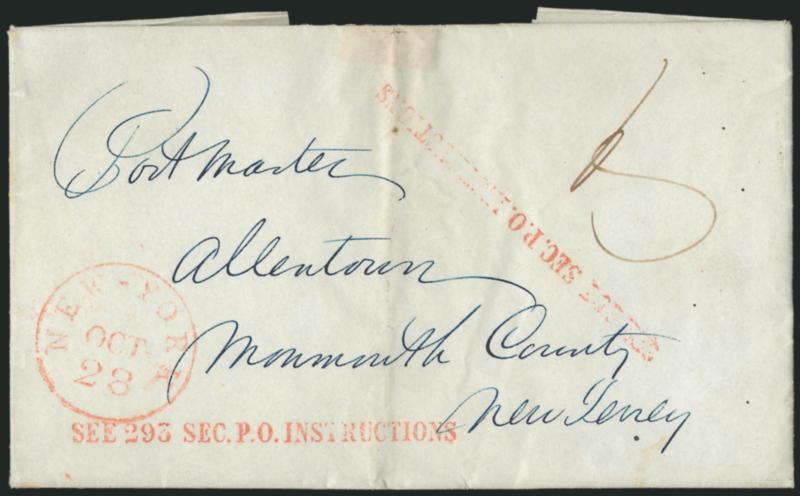 Post Master
Allentown
Monmouth County
New Jersey
NEW-YORK
OCT
28
SEE 293 SEC. P.O. INSTRUCTIONS
SEC. P.O.